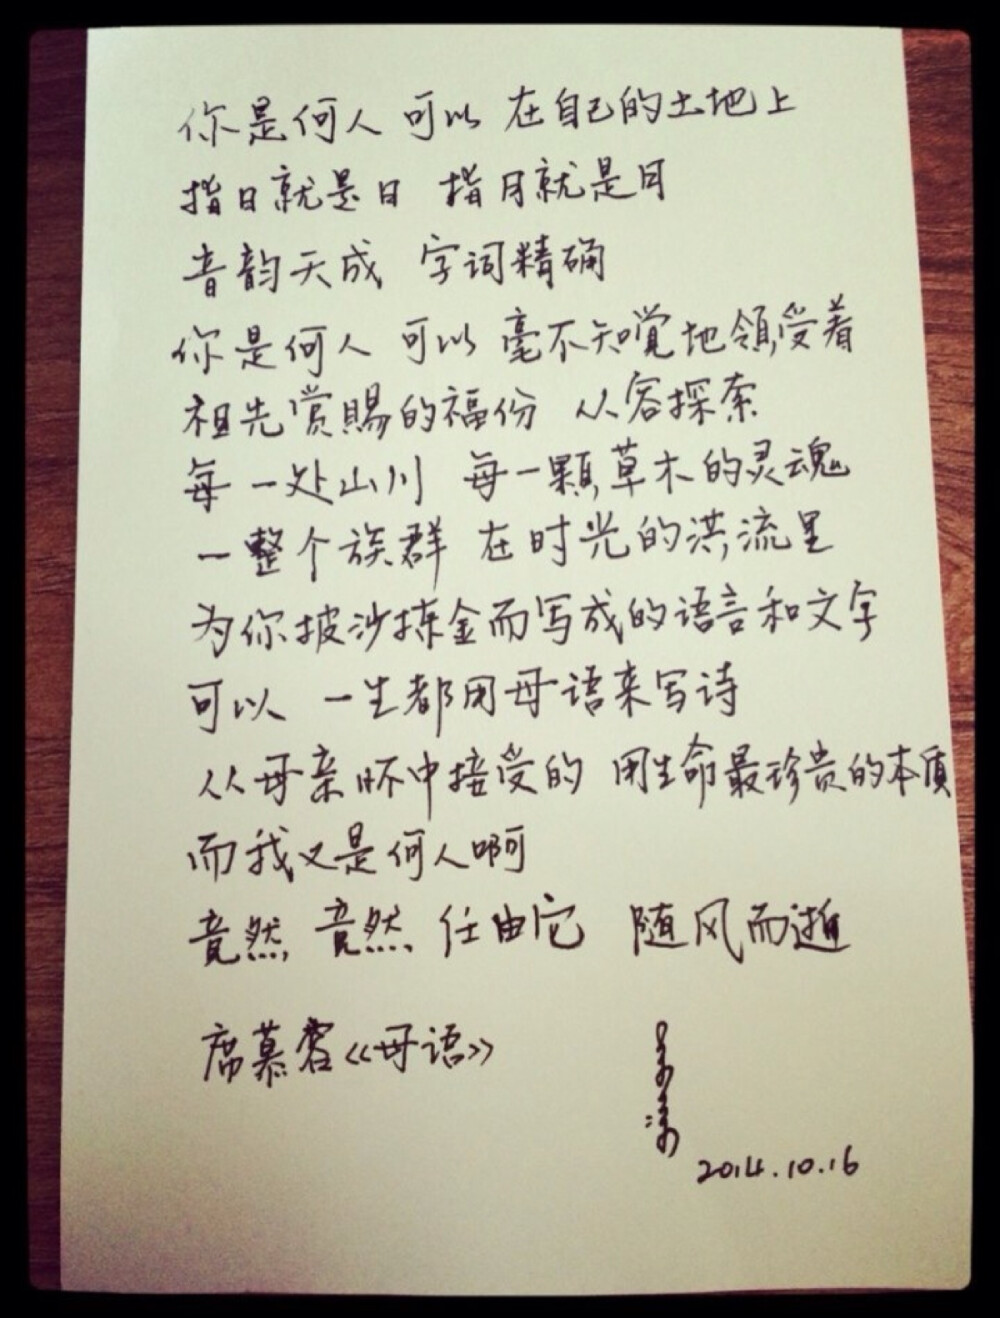 你是何人 可以 在自己的土地上
指日就是日 指月就是月
音韵天成 字词精确
你是何人 可以 毫不知觉地领受着
祖先赏赐的福份 从容探索
每一处山川 每一颗草木的灵魂
一整个族群 在时光的洪流里
为你披沙拣金而写成的语言和文字
可以 一生都用母语来写诗
从母亲怀中接受的 用生命最珍贵的本质
而我又是何人啊
竟然, 竟然, 任由它 随风而逝
席慕容《母语》
2014.10.16